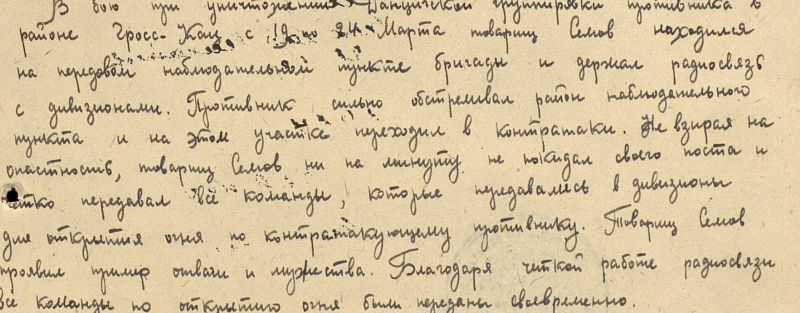 В бою при уничтожении Данцигской группировки противника в
районе Гросс-Кац с 19 по 24 Марта товарищ Семов находился
на передовом наблюдательном пункте бригады и держал радиосвязь
с дивизионами. Противник сильно обстреливал район наблюдательного
пункта и на этом участке переходил в контратаки. Не взирая на
опастность, товарищ Семов ни на минуту не покидал своего поста и
чётко передавал все команды, которые передавались в дивизионы
для открытия огня по контратакующему противнику. Товарищ Семов
проявил пример отваги и мужества. Благодаря четкой работе радиосвязи
все команды по открытию огня были переданы своевременно.